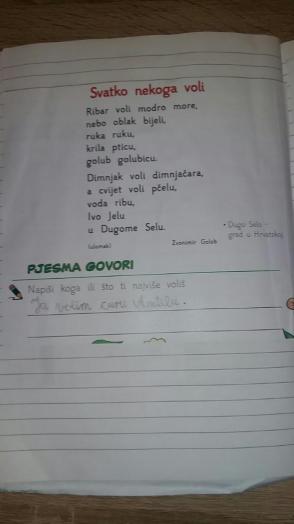 Svatko nekoga voli
Ribar voli modro more,
nebo oblak bijeli,
ruka ruku,
krila pticu,
golub golubicu.
Dimnjak voli dimnjačara,
a cvijet voli pčelu,
voda ribu,
Ivo Jelu
u Dugome Selu.
(ulomak)
Zvonimir Golob
• Dugo Selo –
grad u Hrvatskoj
PJESMA GOVORI
Napiši koga ili što ti najviše voliš.
Ja volim curu